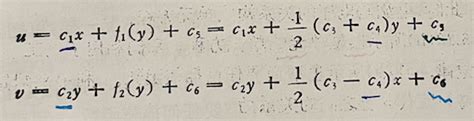 u = c₁x + f₁(y) + c₅ = c₁x + 1/2 (c₃ + c₄)y + c₅
v = c₂y + f₂(y) + c₆ = c₂y + 1/2 (c₃ − c₄)x + c₆